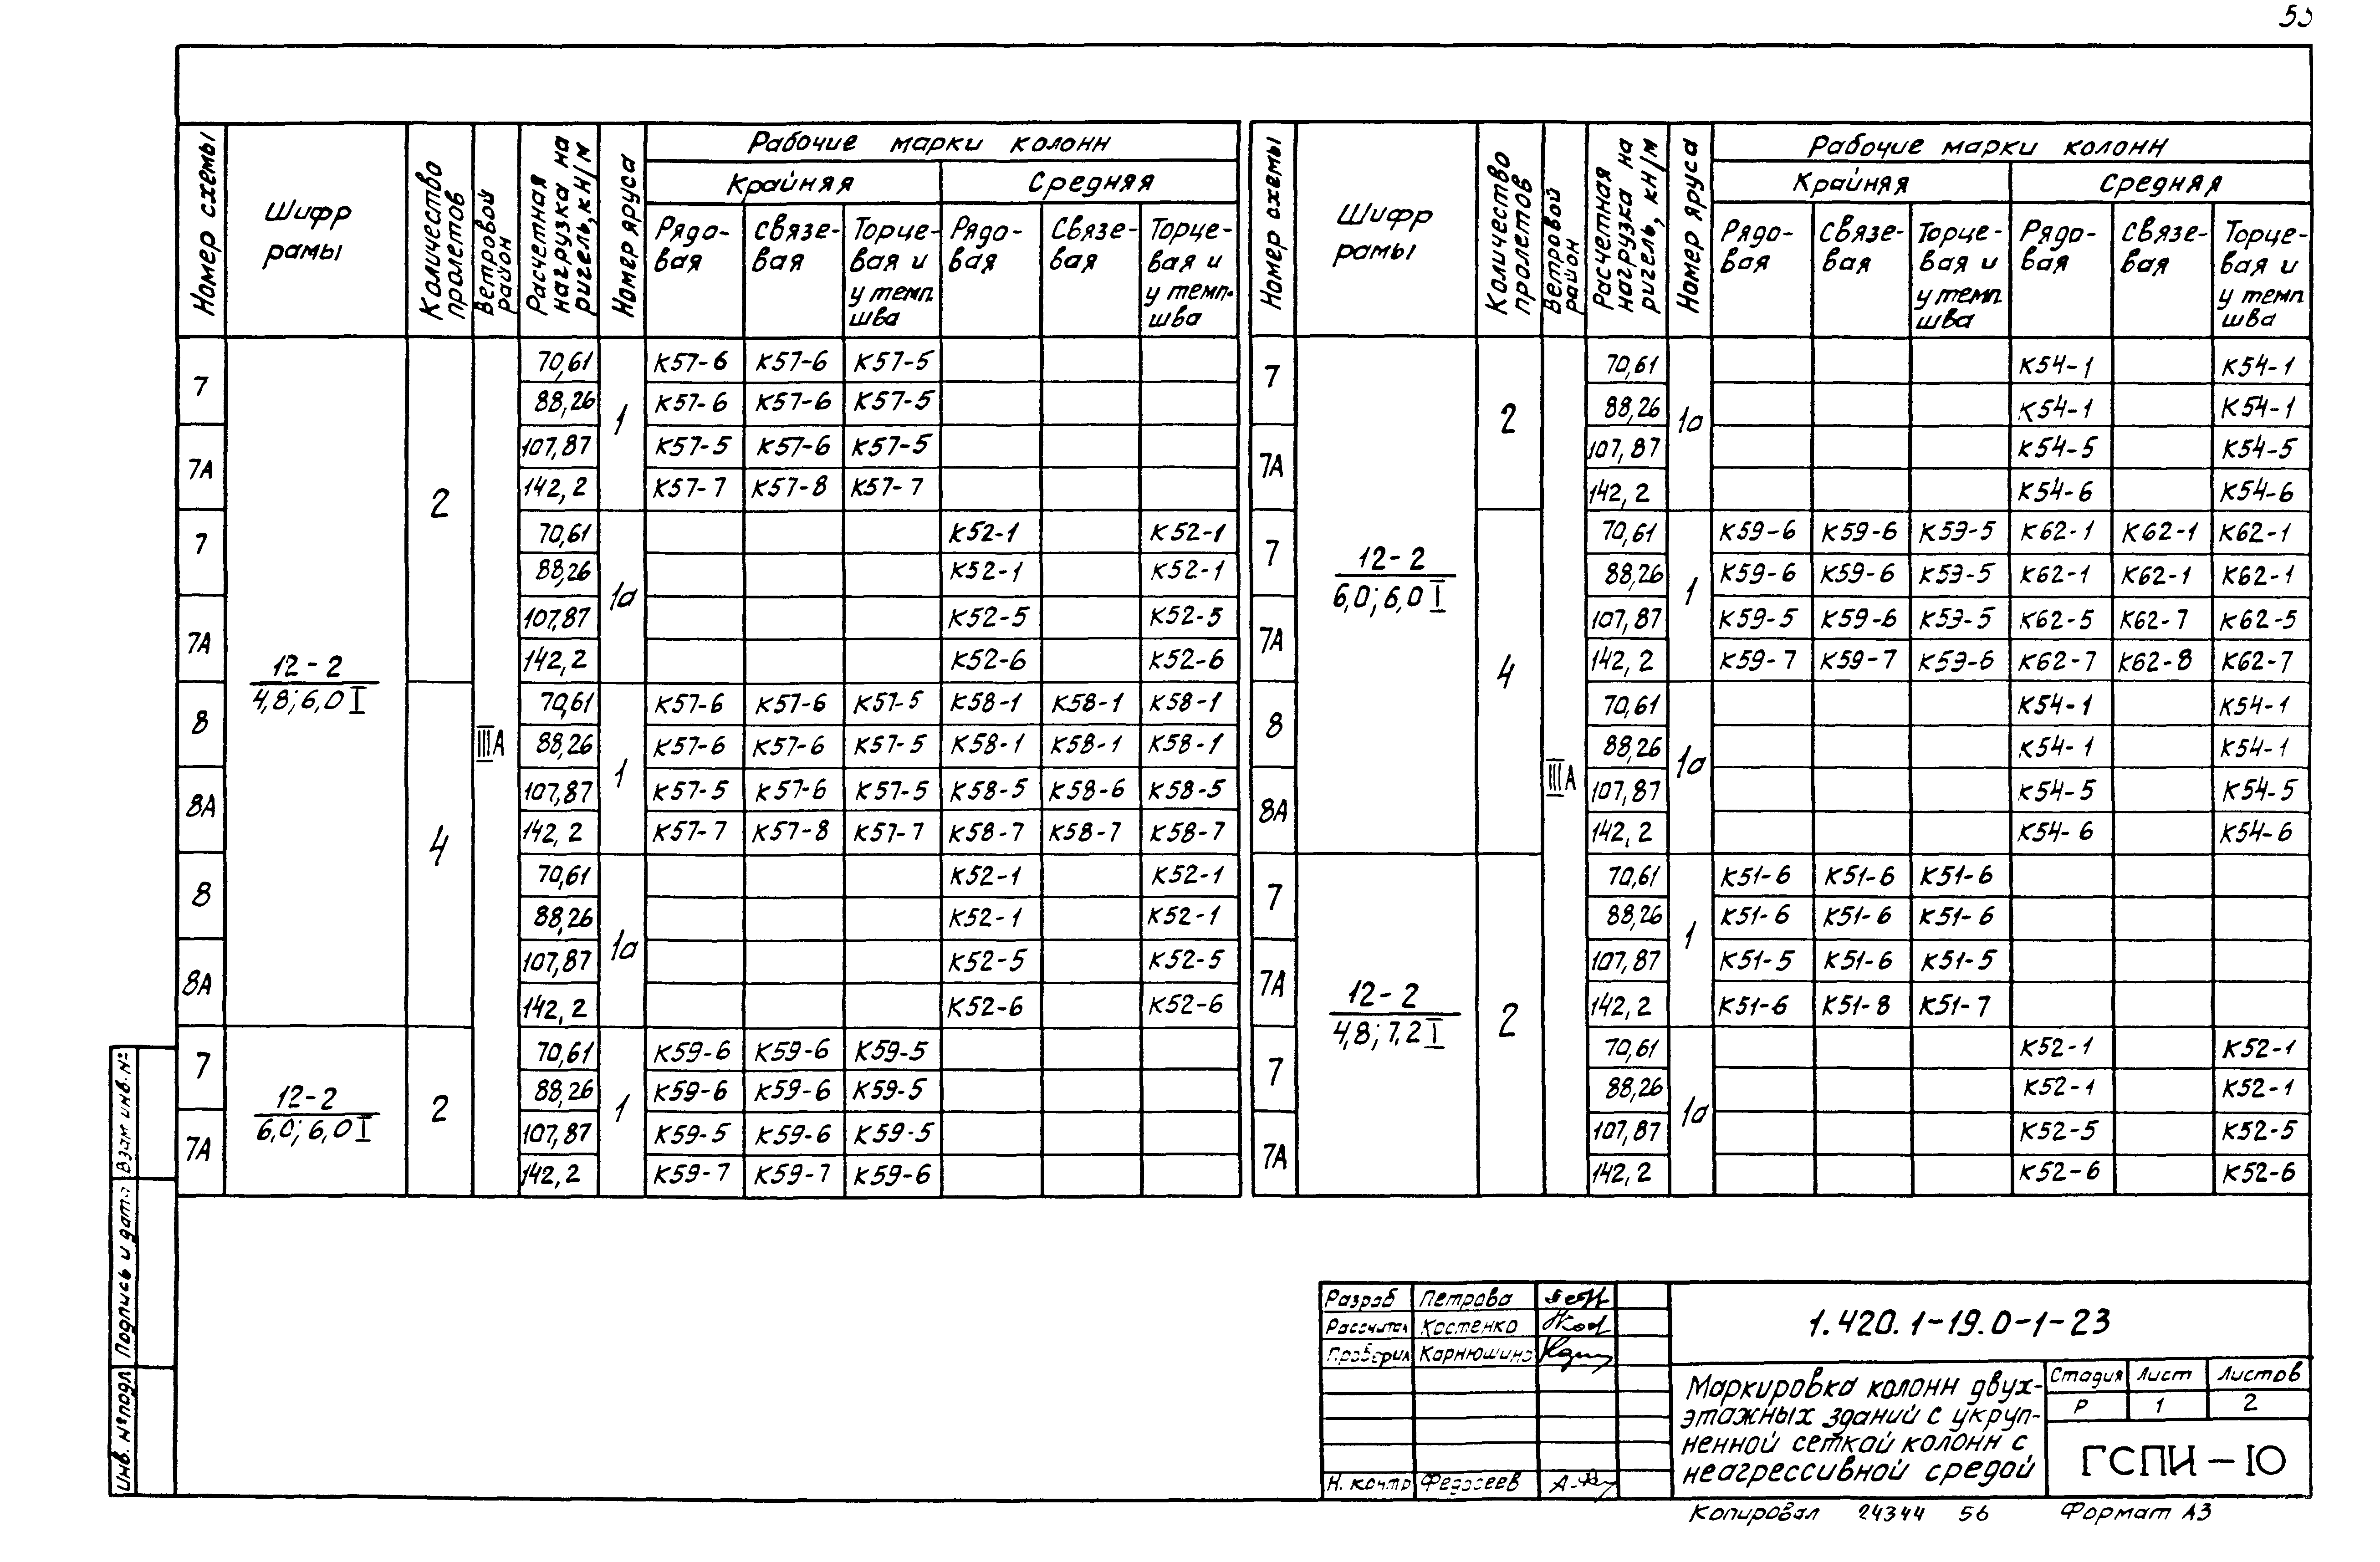 Номер схемы
Шифр рамы
Количество пролетов
Ветровой район
Расчетная нагрузка на ригель, кН/м
Номер яруса
Рабочие марки колонн
Крайняя Средняя
Рядо-вая Связе-вая Торце-вая и у темп. шва Рядо-вая Связе-вая Торце-вая и у темп. шва
7 7А 7 7А 8 8А 8 8А 7 7А
12-2
4,8; 6,0 I
12-2
6,0; 6,0 I
2 4 2
IIIА
1 1а 1 1а 1
70,61 К57-6 К57-6 К57-5
88,26 К57-6 К57-6 К57-5
107,87 К57-5 К57-6 К57-5
142,2 К57-7 К57-8 К57-7
70,61 К52-1 К52-1
88,26 К52-1 К52-1
107,87 К52-5 К52-5
142,2 К52-6 К52-6
70,61 К57-6 К57-6 К57-5 К58-1 К58-1 К58-1
88,26 К57-6 К57-6 К57-5 К58-1 К58-1 К58-1
107,87 К57-5 К57-6 К57-5 К58-5 К58-6 К58-5
142,2 К57-7 К57-8 К57-7 К58-7 К58-7 К58-7
70,61 К52-1 К52-1
88,26 К52-1 К52-1
107,87 К52-5 К52-5
142,2 К52-6 К52-6
70,61 К59-6 К59-6 К59-5
88,26 К59-6 К59-6 К59-5
107,87 К59-5 К59-6 К59-5
142,2 К59-7 К59-7 К59-6
Номер схемы
Шифр рамы
Количество пролетов
Ветровой район
Расчетная нагрузка на ригель, кН/м
Номер яруса
Рабочие марки колонн
Крайняя Средняя
Рядо-вая Связе-вая Торце-вая и у темп. шва Рядо-вая Связе-вая Торце-вая и у темп шва
7 7А 7 7А 8 8А 7 7А 7 7А
12-2
6,0; 6,0 I
12-2
4,8; 7,2 I
2 4 2
IIIА
1а 1 1а 1 1а
70,61 К54-1 К54-1
88,26 К54-1 К54-1
107,87 К54-5 К54-5
142,2 К54-6 К54-6
70,61 К59-6 К59-6 К59-5 К62-1 К62-1 К62-1
88,26 К59-6 К59-6 К59-5 К62-1 К62-1 К62-1
107,87 К59-5 К59-6 К59-5 К62-5 К62-7 К62-5
142,2 К59-7 К59-7 К59-6 К62-7 К62-8 К62-7
70,61 К54-1 К54-1
88,26 К54-1 К54-1
107,87 К54-5 К54-5
142,2 К54-6 К54-6
70,61 К51-6 К51-6 К51-6
88,26 К51-6 К51-6 К51-6
107,87 К51-5 К51-6 К51-5
142,2 К51-6 К51-8 К51-7
70,61 К52-1 К52-1
88,26 К52-1 К52-1
107,87 К52-5 К52-5
142,2 К52-6 К52-6
Взам инв. №
Подпись и дата
Инв. № подл
Разраб Петрова
Рассчитал Костенко
Проверил Карнюшина
Н. контр Федосеев
1.420.1-19.0-1-23
Маркировка колонн двух-
этажных зданий с укруп-
ненной сеткой колонн с
неагрессивной средой
Стадия Лист Листов
Р 1 2
ГСПИ-10
Копировал 24344 56 Формат А3